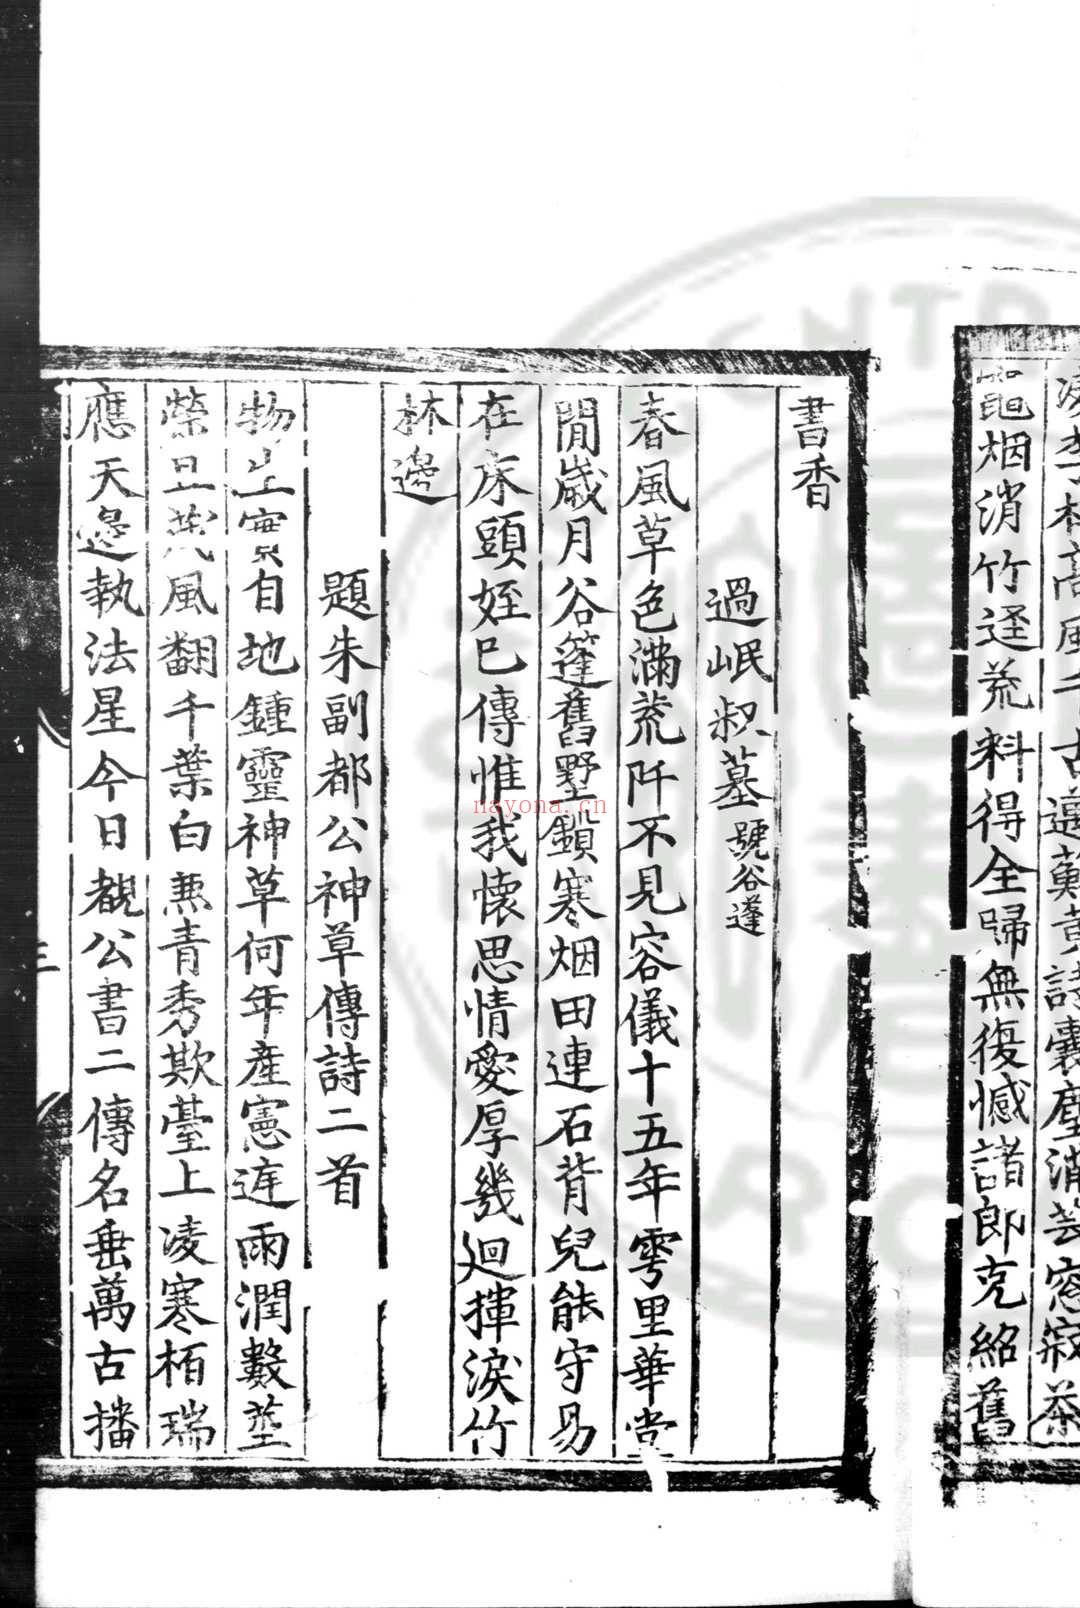 凌李杜高風千古邁蘇黄詩囊塵滿芸窓寂茶
竈烟消竹逕荒料得全歸無復憾諸郎克紹舊
書香
過岷叔墓號谷篷
春風草色滿荒阡不見容儀十五年雩里華堂
閒歲月谷篷舊墅鎖寒烟田連石背兒能守易
在床頭姪已傳惟我懷思情愛厚幾迴揮淚竹
林邊
題朱副都公神草傳詩二首
物生實自地鍾靈神草何年産憲庭雨潤數莖
榮且茂風翻千葉白兼青秀欺臺上凌寒栢瑞
應天邊執法星今日覩公書二傳名垂萬古播
三
nayona.cn